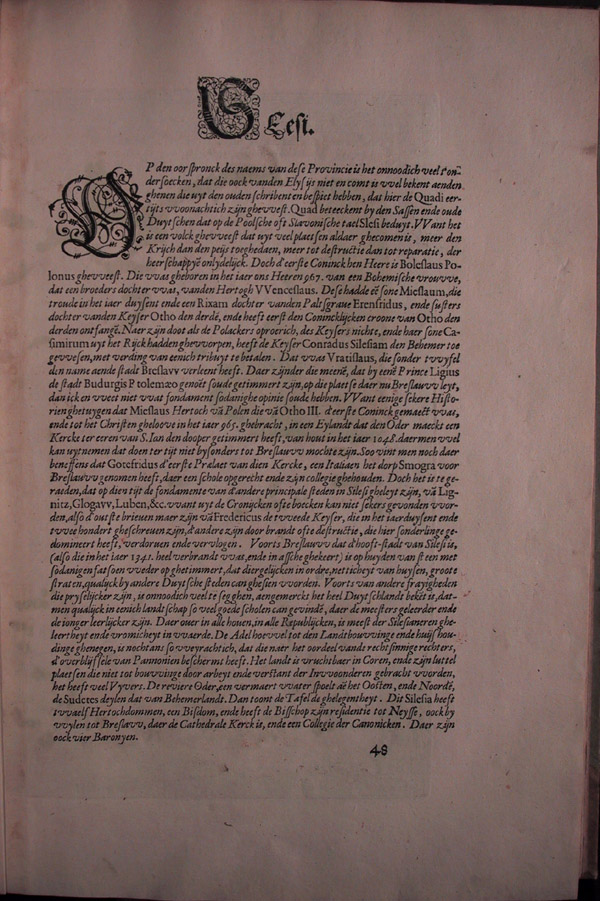 SLesi.
OP den oorspronck des naems van dese Provincie is het onnoodich veel t'on-
dersoecken, dat die oock vanden Elysijs niet en comt is wel bekent aenden
ghenen die uyt den ouden schribenten bespiet hebben, dat hier de Quadi eer-
tijts vvoonachtich zijn ghevvest. Quad beteeckent by den Sassen ende oude
Duytschen dat op de Poolsche oft Slavonische tael Slesi beduyt. VVant het
is een volck ghevveest dat uyt veel plaetsen aldaer ghecomen is, meer den
Krijch dan den peijs toeghedaen, meer tot destructie dan tot reparatie, der
heerschappyē onlydelijck. Doch d'eerste Coninck ben Heere is Boleslaus Po-
lonus ghevveest. Die vvas gheboren in het iaer ons Heeren 967. van een Bohemische vrouvve,
dat een broeders dochter vvas, vanden Hertogh VVenceslaus. Dese hadde eē sone Mieslaum, die
troude in het iaer duysent ende een Rixam dochter vanden Paltsgraue Erenfridus, ende susters
dochter vanden Keyser Otho den derdē, ende heeft eerst den Conincklijcken croone van Otho den
derden ontfangē. Naer zijn doot als de Polackers oproerich, des Keysers nichte, ende haer sone Ca-
simirum uyt het Rijck hadden ghevvorpen, heeft de Keyser Conradus Silesiam den Behemer toe
gevvesen, met verding van eenich tribuyt te betalen. Dat vvas Vratislaus, die sonder tvvyfel
den name aende stadt Breslavv verleent heeft. Daer zijnder die meenē, dat by eenē Prince Ligius
de stadt Budurgis Ptolemæo genoēt soude getimmert zijn, op die plaetse daer nu Breslauvv leyt,
dan ick en vveet niet vvat fondament sodanighe opinie soude hebben. VVant eenige sekere Histo-
rien ghetuygen dat Mieslaus Hertoch vā Polen die vā Otho III. d'eerste Coninck gemaect vvas,
ende tot het Christen gheloove in het iaer 965. ghebracht, in een Eylandt dat den Oder maeckt een
Kercke ter eeren van S. Ian den dooper getimmert heeft, van hout in het iaer 1048. daermen vvel
kan uytnemen dat doen ter tijt niet bysonders tot Breslauvv mochte zijn. Soo vint men noch daer
beneffens dat Gotefridus d'eerste Prælaet van dien Kercke, een Italiaen het dorp Smogra voor
Breslauvv genomen heeft, daer een schole opgerecht ende zijn collegie ghehouden. Doch het is te ge-
raeden, dat op dien tijt de fondamente van d'andere principale steden in Silesi gheleyt zijn, vā Lig-
nitz, Glogavv, Luben, &c. vvant uyt de Cronijcken ofte boecken kan niet sekers gevonden vvor-
den, also d'outste brieuen maer zijn vā Fredericus de tvveede Keyser, die in het iaer duysent ende
tvvee hondert gheschreuen zijn, d'andere zijn door brandt ofte destructie, die hier sonderlinge ge-
domineert heeft, verdoruen ende vervlogen. Voorts Breslauvv dat d'hooft-stadt van Silesi is,
(also die in het iaer 1341. heel verbrandt vvas, ende in assche ghekeert) is op huyden van steen met
sodanigen fatsoen vveder op ghetimmert, dat diergelijcken in ordre, netticheyt van huysen, groote
straten, qualijck by andere Duytsche steden can ghesien vvorden. Voorts van andere frayigheden
die pryselijcker zijn, is onnoodich veel te segghen, aengemerckt het heel Duytschlandt bekēt is, dat-
men qualijck in eenich landtschap so veel goede scholen can gevindē, daer de meesters geleerder ende
de ionger leerlijcker zijn. Daer ouer in alle houen, in alle Republijcken, is meest der Silesianeren ghe-
leertheyt ende vromicheyt in vvaerde. De Adel hoevvel tot den Landtbouvvinge ende huijshou-
dinge ghenegen, is nochtans so vveyrachtich, dat die naer het oordeel vande rechtsinnige rechters,
d'overblijfsele van Pannonien beschermt heeft. Het landt is vruchtbaer in Coren, ende zijn luttel
plaetsen die niet tot bouvvinge door arbeyt ende verstant der Invvoonderen gebracht vvorden,
het heeft veel Vyvers. De reviere Oder, een vermaert vvater spoelt aē het Oosten, ende Noordē,
de Sudetes deylen dat van Behemerlandt. Dan toont de Tafel de ghelegentheyt. Dit Silesia heeft
tvvaelf Hertochdommen, een Bisdom, ende heeft de Bisschop zijn residentie tot Neysse, oock by
vvylen tot Breslavv, daer de Cathedrale Kerck is, ende een Collegie der Canonicken. Daer zijn
oock vier Baronyen.
48